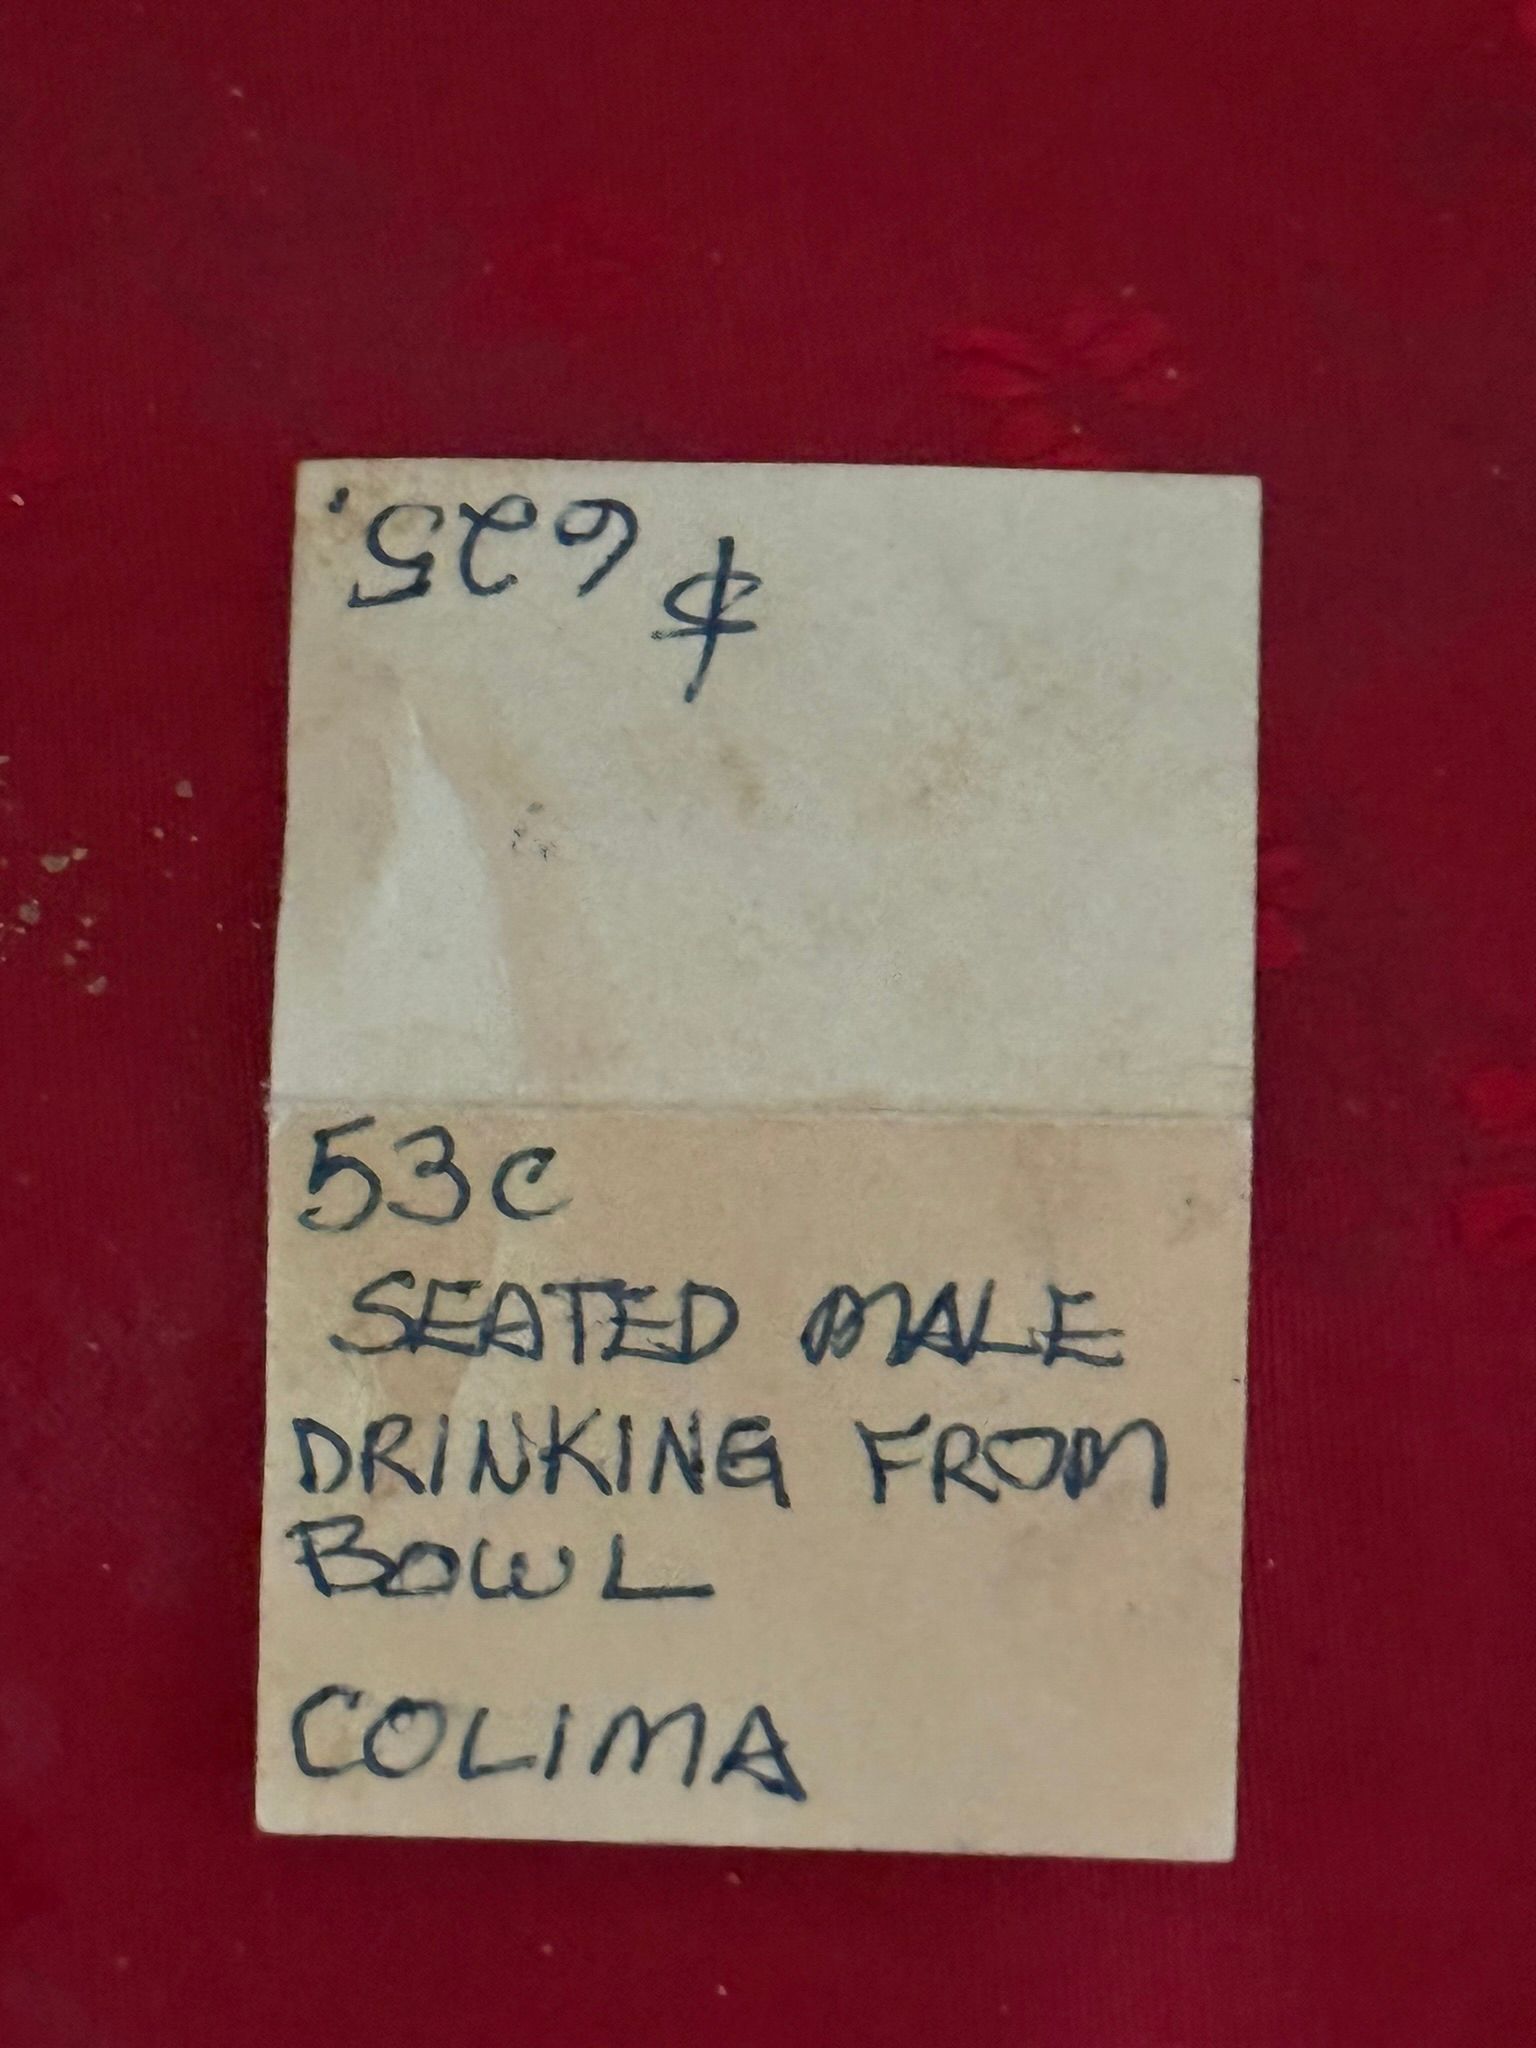 $625.
53C
SEATED MALE
DRINKING FROM
BOWL
COLIMA